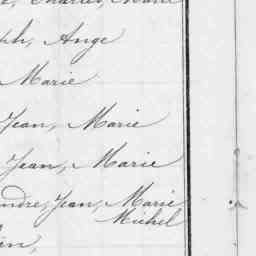 Charles, Marie
ph, Ange
Marie
Jean, Marie
Jean, Marie
andre, Jean, Marie
Michel
en,